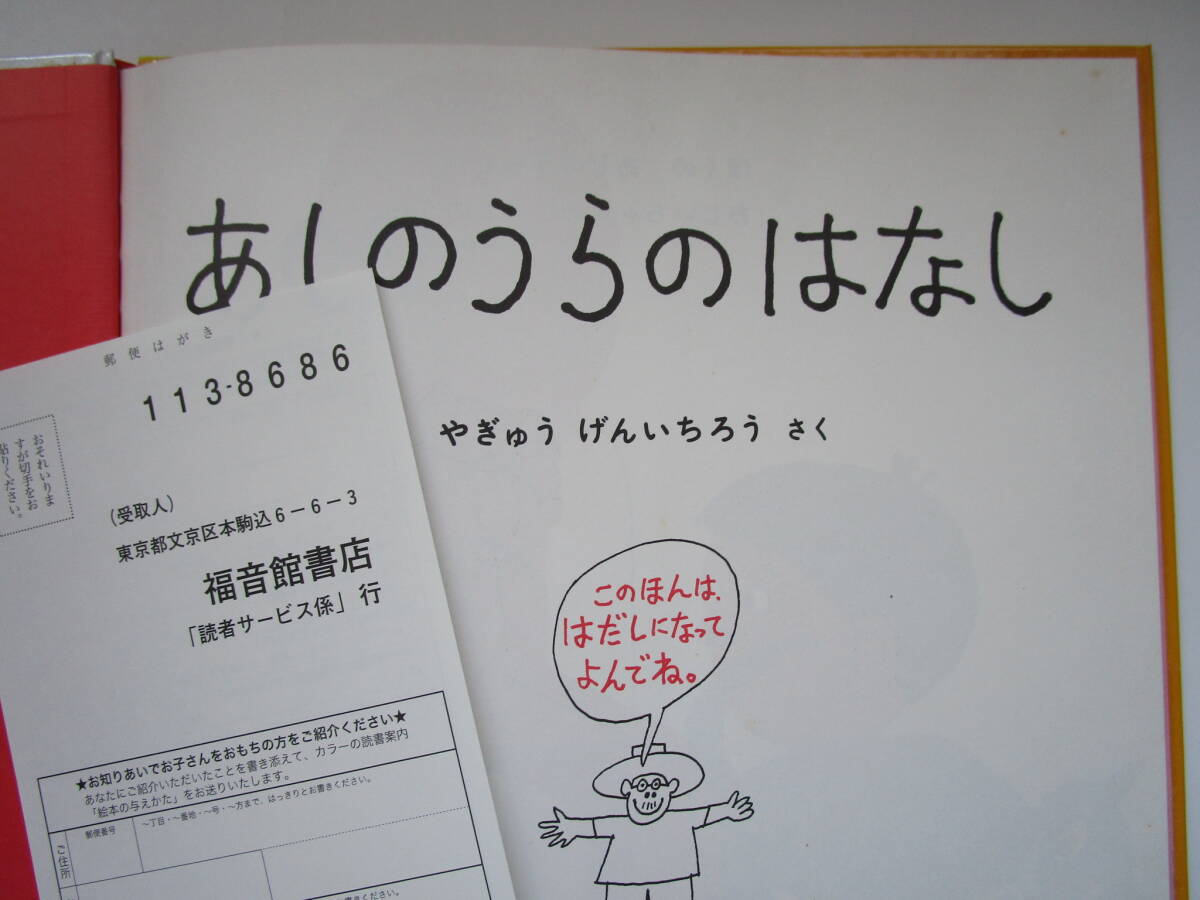 あしのうらのはなし
やぎゅう げんいちろう さく
このほんは、
はだしになって
よんでね。
郵便はがき
113-8686
おそれいりま
すが切手をお
貼りください。
(受取人)
東京都文京区本駒込6-6-3
福音館書店
「読者サービス係」行
★お知りあいでお子さんをおもちの方をご紹介ください★
あなたにご紹介いただいたことを書き添えて、カラーの読書案内
「絵本の与えかた」をお送りいたします。
ご住所
郵便番号
〜丁目・〜番地・〜号・〜方まで、はっきりとお書きください。
書きください。